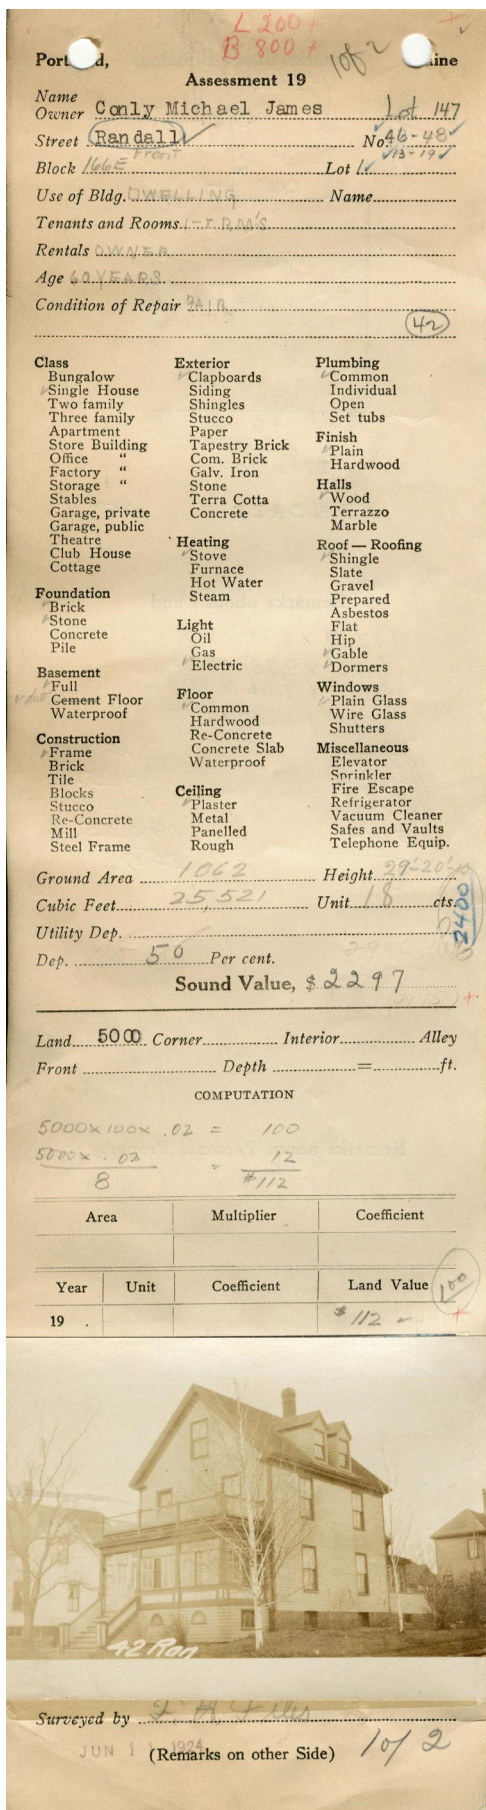 L 200 +
B 800 +
1 of 2
Portland, Maine
Assessment 19
Name
Owner Conly Michael James Lot 147
Street Randall No 46-48
Front 13-19
Block 166E Lot 1
Use of Bldg. DWELLING Name
Tenants and Rooms 1- RM'S
Rentals OWNER
Age 60 YEARS
Condition of Repair FAIR
42
Class
Bungalow
Single House
Two family
Three family
Apartment
Store Building
Office "
Factory "
Storage "
Stables
Garage, private
Garage, public
Theatre
Club House
Cottage
Foundation
Brick
Stone
Concrete
Pile
Basement
Full
Cement Floor
Waterproof
Construction
Frame
Brick
Tile
Blocks
Stucco
Re-Concrete
Mill
Steel Frame
Exterior
Clapboards
Siding
Shingles
Stucco
Paper
Tapestry Brick
Com. Brick
Galv. Iron
Stone
Terra Cotta
Concrete
Heating
Stove
Furnace
Hot Water
Steam
Light
Oil
Gas
Electric
Floor
Common
Hardwood
Re-Concrete
Concrete Slab
Waterproof
Ceiling
Plaster
Metal
Panelled
Rough
Plumbing
Common
Individual
Open
Set tubs
Finish
Plain
Hardwood
Halls
Wood
Terrazzo
Marble
Roof — Roofing
Shingle
Slate
Gravel
Prepared
Asbestos
Flat
Hip
Gable
Dormers
Windows
Plain Glass
Wire Glass
Shutters
Miscellaneous
Elevator
Sprinkler
Fire Escape
Refrigerator
Vacuum Cleaner
Safes and Vaults
Telephone Equip.
Ground Area 1062 Height 29'-20'-10
Cubic Feet 25,521 Unit 18 cts.
2400
Utility Dep.
Dep. 50 Per cent.
Sound Value, $ 2297
Land 5000 Corner Interior Alley
Front Depth = ft.
COMPUTATION
5000 x 100 x .02 = 100
5000 x .02 = 12
8 $112
Area Multiplier Coefficient
Year Unit Coefficient Land Value
100
19 . $ 112 -
42 Ran
Surveyed by
JUN 1 1924
(Remarks on other Side) 1 of 2